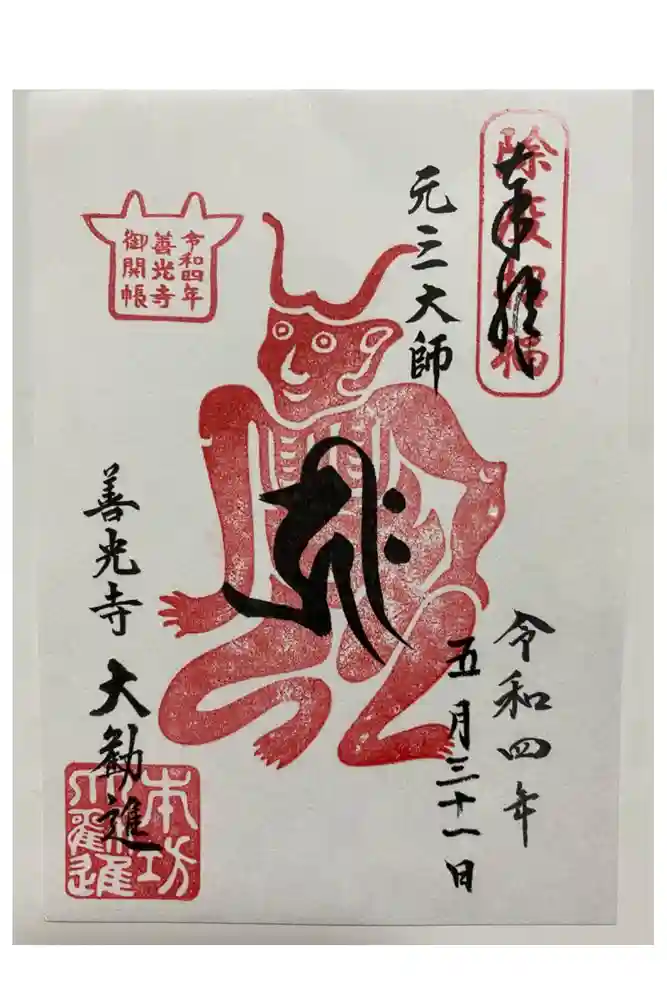 奉拝
除疫招福
元三大師
令和四年
五月三十一日
令和四年
善光寺
御開帳
善光寺 大勧進
本坊
大勧進